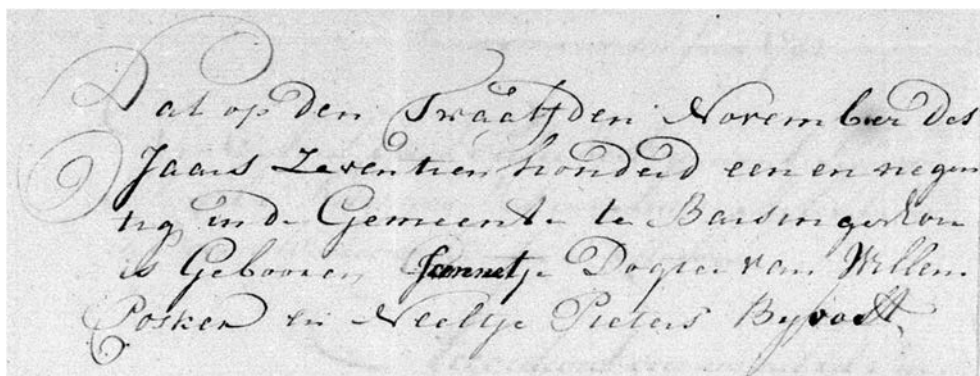 Dat op den Twaalfden November des
Jaars Zeventien honderd een en negen
tig in de Gemeente te Barsingerhorn
is Gebooren Jannetje Dogter van Willem
Posker en Neeltje Pieters Byvoet